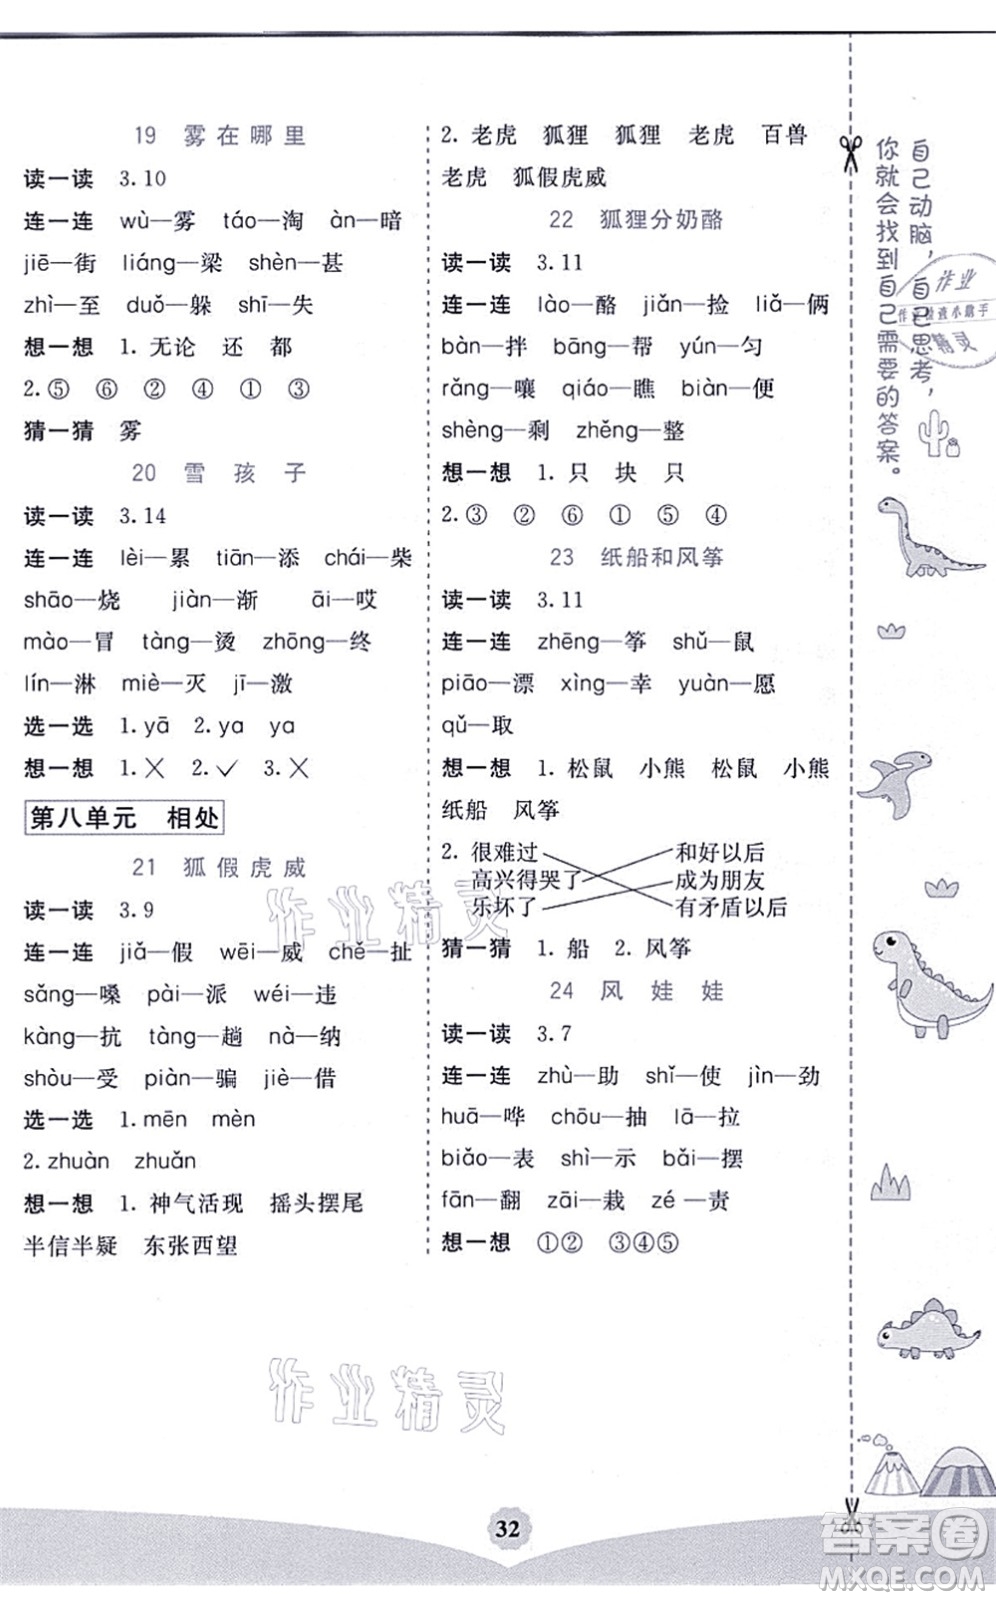 19 雾在哪里
读一读 3.10
连一连 wù—雾 táo—淘 àn—暗
jiē—街 liáng—梁 shèn—甚
zhì—至 duǒ—躲 shī—失
想一想 1. 无论 还 都
2.⑤ ⑥ ② ④ ① ③
猜一猜 雾
20 雪孩子
读一读 3.14
连一连 lèi—累 tiān—添 chái—柴
shāo—烧 jiàn—渐 āi—哎
mào—冒 tàng—烫 zhōng—终
lín—淋 miè—灭 jī—激
选一选 1.yā 2.ya ya
想一想 1.✗ 2.✓ 3.✗
第八单元 相处
21 狐假虎威
读一读 3.9
连一连 jiǎ—假 wēi—威 chě—扯
sǎng—嗓 pài—派 wéi—违
kàng—抗 tàng—趟 nà—纳
shòu—受 piàn—骗 jiè—借
选一选 1.mēn mèn
2.zhuàn zhuǎn
想一想 1. 神气活现 摇头摆尾
半信半疑 东张西望
2. 老虎 狐狸 狐狸 老虎 百兽
老虎 狐假虎威
22 狐狸分奶酪
读一读 3.11
连一连 lào—酪 jiǎn—捡 liǎ—俩
bàn—拌 bāng—帮 yún—匀
rǎng—嚷 qiáo—瞧 biàn—便
shèng—剩 zhěng—整
想一想 1. 只 块 只
2.③ ② ⑥ ① ⑤ ④
23 纸船和风筝
读一读 3.11
连一连 zhēng—筝 shǔ—鼠
piāo—漂 xìng—幸 yuàn—愿
qǔ—取
想一想 1. 松鼠 小熊 松鼠 小熊
纸船 风筝
2. 很难过 和好以后
高兴得哭了 成为朋友
乐坏了 有矛盾以后
猜一猜 1. 船 2. 风筝
24 风娃娃
读一读 3.7
连一连 zhù—助 shǐ—使 jìn—劲
huā—哗 chōu—抽 lā—拉
biǎo—表 shì—示 bǎi—摆
fān—翻 zāi—栽 zé—责
想一想 ①② ③④⑤
自己动脑，自己思考，
你就会找到自己需要的答案。
作业
作业检查小助手
精灵
作业精灵
作业精灵
32
答案圈
MXQE.COM